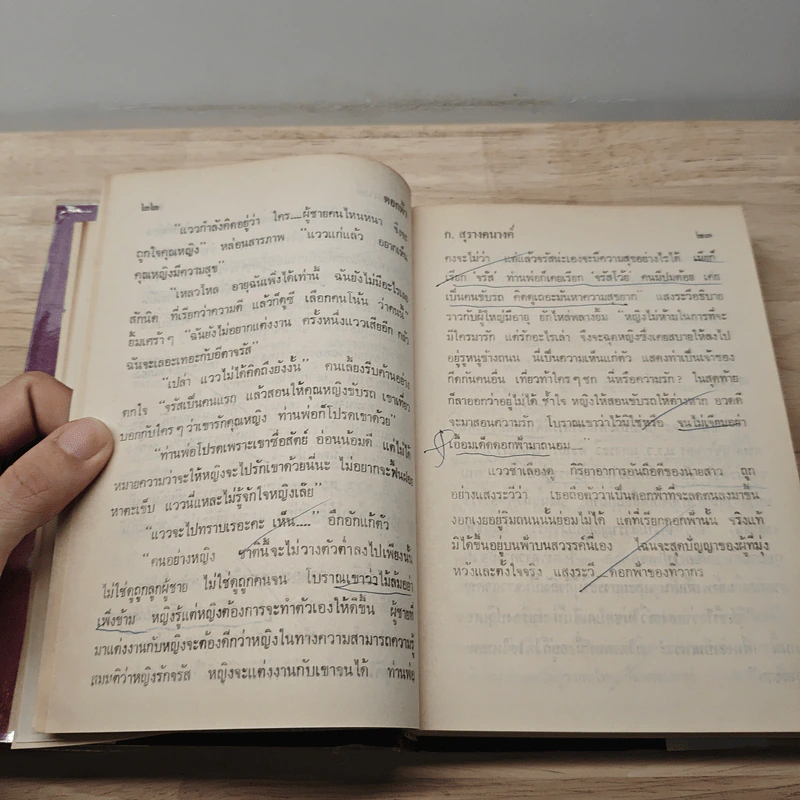 ๒๒
ดอกฟ้า
"แววกำลังคิดอยู่ว่า ใคร....ผู้ชายคนไหนหนา จึงจะ
ถูกใจคุณหญิง" หล่อนสารภาพ "แววแก่แล้ว อยากเห็น
คุณหญิงมีความสุข"
"เหลวไหล อายุฉันเพิ่งได้เท่านี้ ฉันยังไม่มีอะไรเลย
สักนิด ที่เรียกว่าความดี แล้วก็ดูซี เลือกคนโน้น ว่าคนนี้"
ยิ้มเศร้าๆ "ฉันยังไม่อยากแต่งงาน ครั้งหนึ่งแววเสียอีก กลัว
ฉันจะเลอะเทอะกับอีตาจรัส"
"เปล่า แววไม่ได้คิดถึงยังงั้น" คนเลี้ยงรีบค้านอย่าง
ตกใจ "จรัสเป็นคนแรก แล้วสอนให้คุณหญิงขับรถ เขาเที่ยว
บอกกับใครๆ ว่าเขารักคุณหญิง ท่านพ่อก็โปรดเขาด้วย"
"ท่านพ่อโปรดเพราะเขาซื่อสัตย์ อ่อนน้อมดี แต่ไม่ได้
หมายความว่าจะให้หญิงจะไปรักเขาด้วยนี่นะ ไม่อยากจะฟื้นฝอย
หาตะเข็บ แววนี่แหละไม่รู้จักใจหญิงเล้ย"
"แววจะไปทราบเรอะคะ เห็น....." อึกอักแก้ตัว
"คนอย่างหญิง ชาตินี้จะไม่วางตัวต่ำลงไปเพียงนั้น
ไม่ใช่ดูถูกลูกผู้ชาย ไม่ใช่ดูถูกคนจน โบราณเขาว่าไม้ล้มอย่า
เพิ่งข้าม หญิงรู้แต่หญิงต้องการจะทำตัวเองให้ดีขึ้น ผู้ชายที่
มาแต่งงานกับหญิงจะต้องดีกว่าหญิงในทางความสามารถความรู้
สมมติว่าหญิงรักจรัส หญิงจะแต่งงานกับเขาจนได้ ท่านพ่อ
ก. สุรางคนางค์
๒๓
คงจะไม่ว่า แต่แล้วจรัสน่ะเองจะมีความสุขอย่างไรได้ เมียก็
เรียก 'จรัส' ท่านพ่อก็เคยเรียก 'จรัสโว้ย' คนมีปมด้อย เคย
เป็นคนขับรถ คิดดูเถอะมันหาความสุขยาก" แสงระวีอธิบาย
ราวกับผู้ใหญ่มีอายุ ยักไหล่พลางยิ้ม "หญิงไม่ห้ามในการที่จะ
มีใครมารัก แต่รักอะไรเล่า จึงจะฉุดหญิงซึ่งเคยสบายให้ลงไป
อยู่รูหนูข้างถนน นี่เป็นความเห็นแก่ตัว แสดงท่าเป็นเจ้าของ
กีดกันคนอื่น เที่ยวท้าใครๆ ชก นี่หรือความรัก? ในสุดท้าย
ก็ลาออกว่าอยู่ไม่ได้ ช้ำใจ หญิงให้สอนขับรถให้ต่างหาก อวดดี
จะมาสอนความรัก โบราณเขาว่าไว้มิใช่หรือ จนไม่เจียมอย่า
เอื้อมเด็ดดอกฟ้ามาถนอม...."
แววชำเลืองดู กิริยาอาการอันถือดีของนายสาว ถูก
อย่างแสงระวีว่า เธอถือตัวว่าเป็นดอกฟ้าที่จะลดตนลงมาขึ้น
งอกเงยอยู่ริมถนนนั้นย่อมไม่ได้ แต่ที่เรียกดอกฟ้านั้น จริงแท้
มิได้ขึ้นอยู่บนฟ้าบนสวรรค์นี่เอง ไฉนจะสุดปัญญาของผู้ที่มุ่ง
หวังและตั้งใจจริง แสงระวี ดอกฟ้าของทิวากร